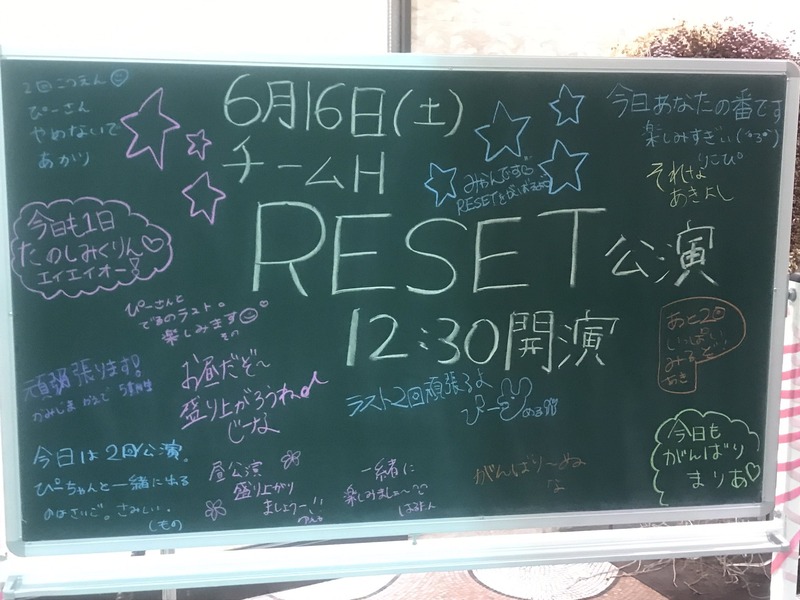 6月16日(土)
チームH
RESET公演
12:30開演
2回こうえん
ぴーさん
やめないで
あかり
今日も1日
たのしみくりん♡
エイエイオー!
ぴーさんと
でるのラスト。
楽しみます
頑張ります!
お昼だぞ〜
盛り上がろうね♪
じーな
今日は2回公演。
ぴーちゃんと一緒に出る
のはさいご。さみしい。
しもの
昼公演
盛り上がり
ましょうー!!
一緒に
楽しみましょ〜
ラスト2回頑張るよ
ぴーす
める
がんばり〜ぬ
な
みかんです♡
RESETを
今日あなたの番です
楽しみすぎぃ
りこぴ
それな
あきよし
あと2回
いっぱい
みるぞ!
あき
今日も
がんばり
まりあ♡